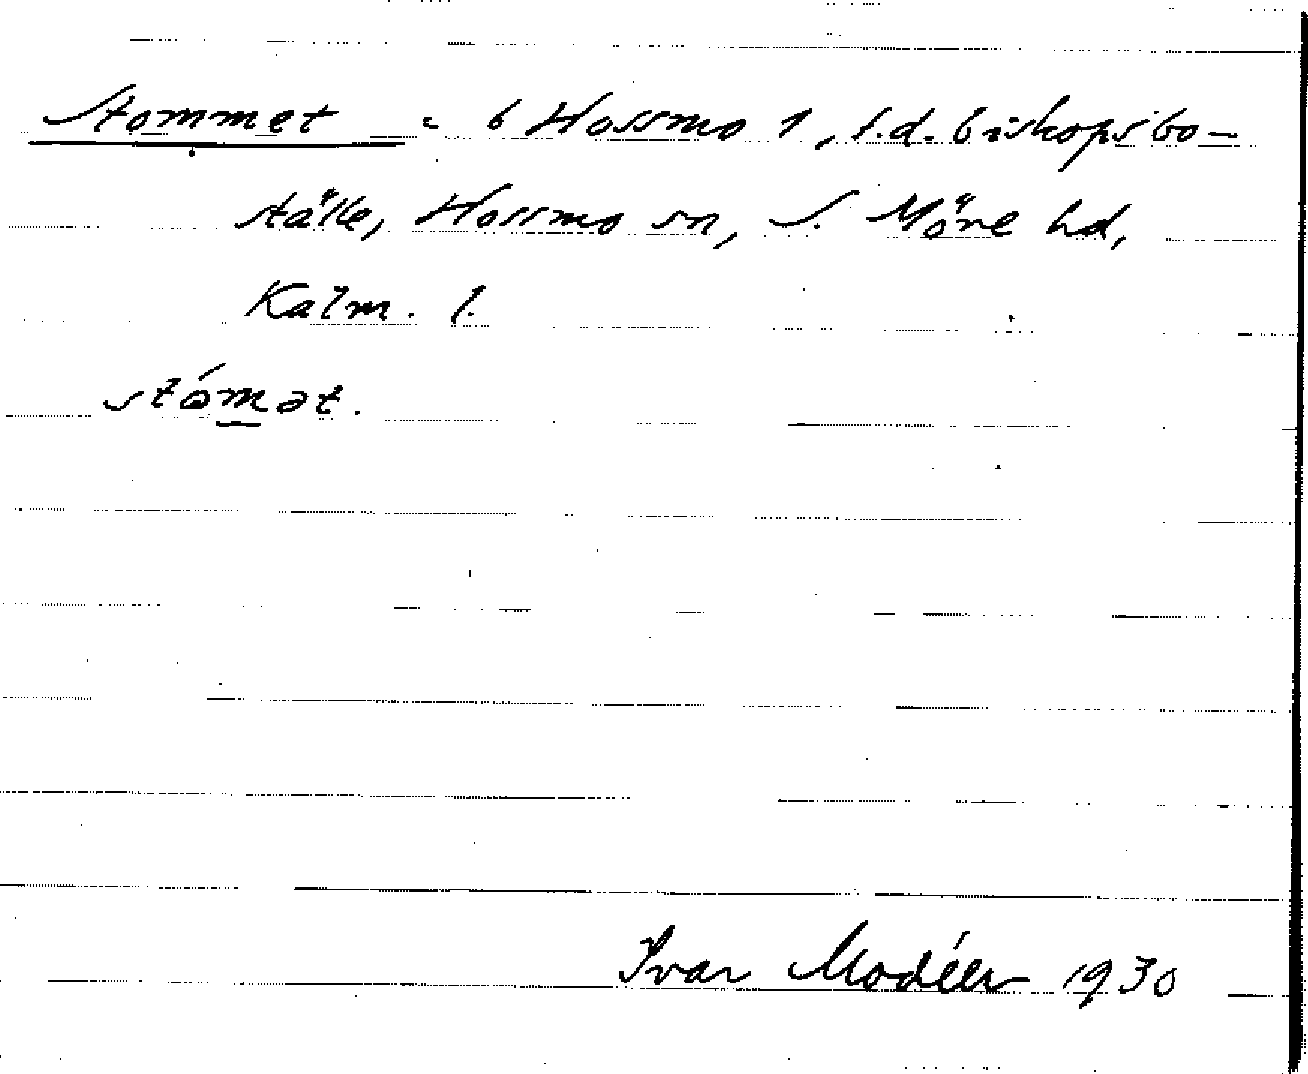 Stommet = 6 Hossmo 1, f.d. biskopsbo-
ställe, Hossmo sn, S. Möre hd,
Kalm. l.
stómət.
Ivar Modéer 1930